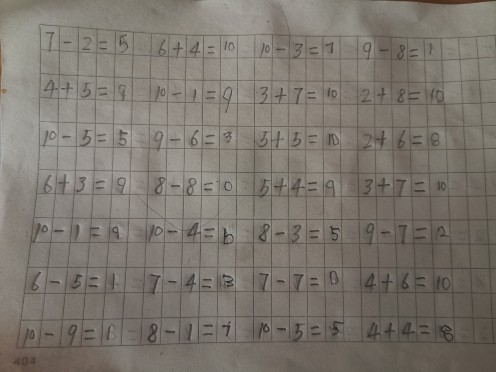 7 - 2 = 5 6 + 4 = 10 10 - 3 = 7 9 - 8 = 1
4 + 5 = 9 10 - 1 = 9 3 + 7 = 10 2 + 8 = 10
10 - 5 = 5 9 - 6 = 3 5 + 5 = 10 2 + 6 = 8
6 + 3 = 9 8 - 8 = 0 5 + 4 = 9 3 + 7 = 10
10 - 1 = 9 10 - 4 = 6 8 - 3 = 5 9 - 7 = 2
6 - 5 = 1 7 - 4 = 3 7 - 7 = 0 4 + 6 = 10
10 - 9 = 8 - 1 = 7 10 - 5 = 5 4 + 4 = 8